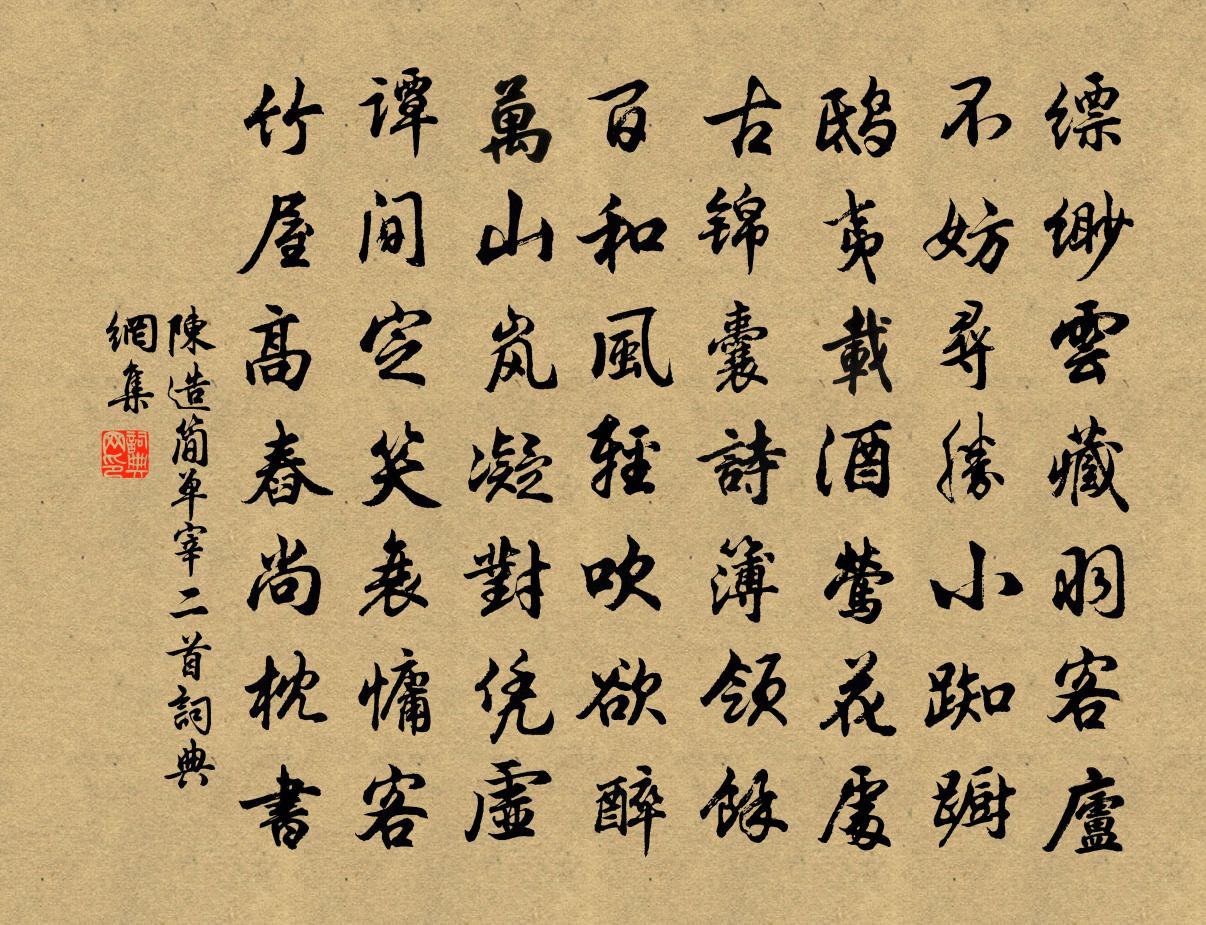 缥緲雲藏羽客廬
不妨尋勝小踟蹰
鴟夷載酒鶯花處
古錦囊詩簿領餘
百和風輕吹欲醉
萬山岚凝對凭虛
譚間定笑衰慵客
竹屋高舂尚枕書
陳造簡單宰二首詞典
網集
詞典网印